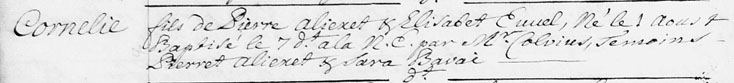 Cornelie fils de Pierre Alienet & Elisabet Euvel, Né le 1 Aoust
Baptisé le 7 dt. a la N.E. par Mr. Colvius, Temoins
Pierret Alienet & Sara Bavae
dt